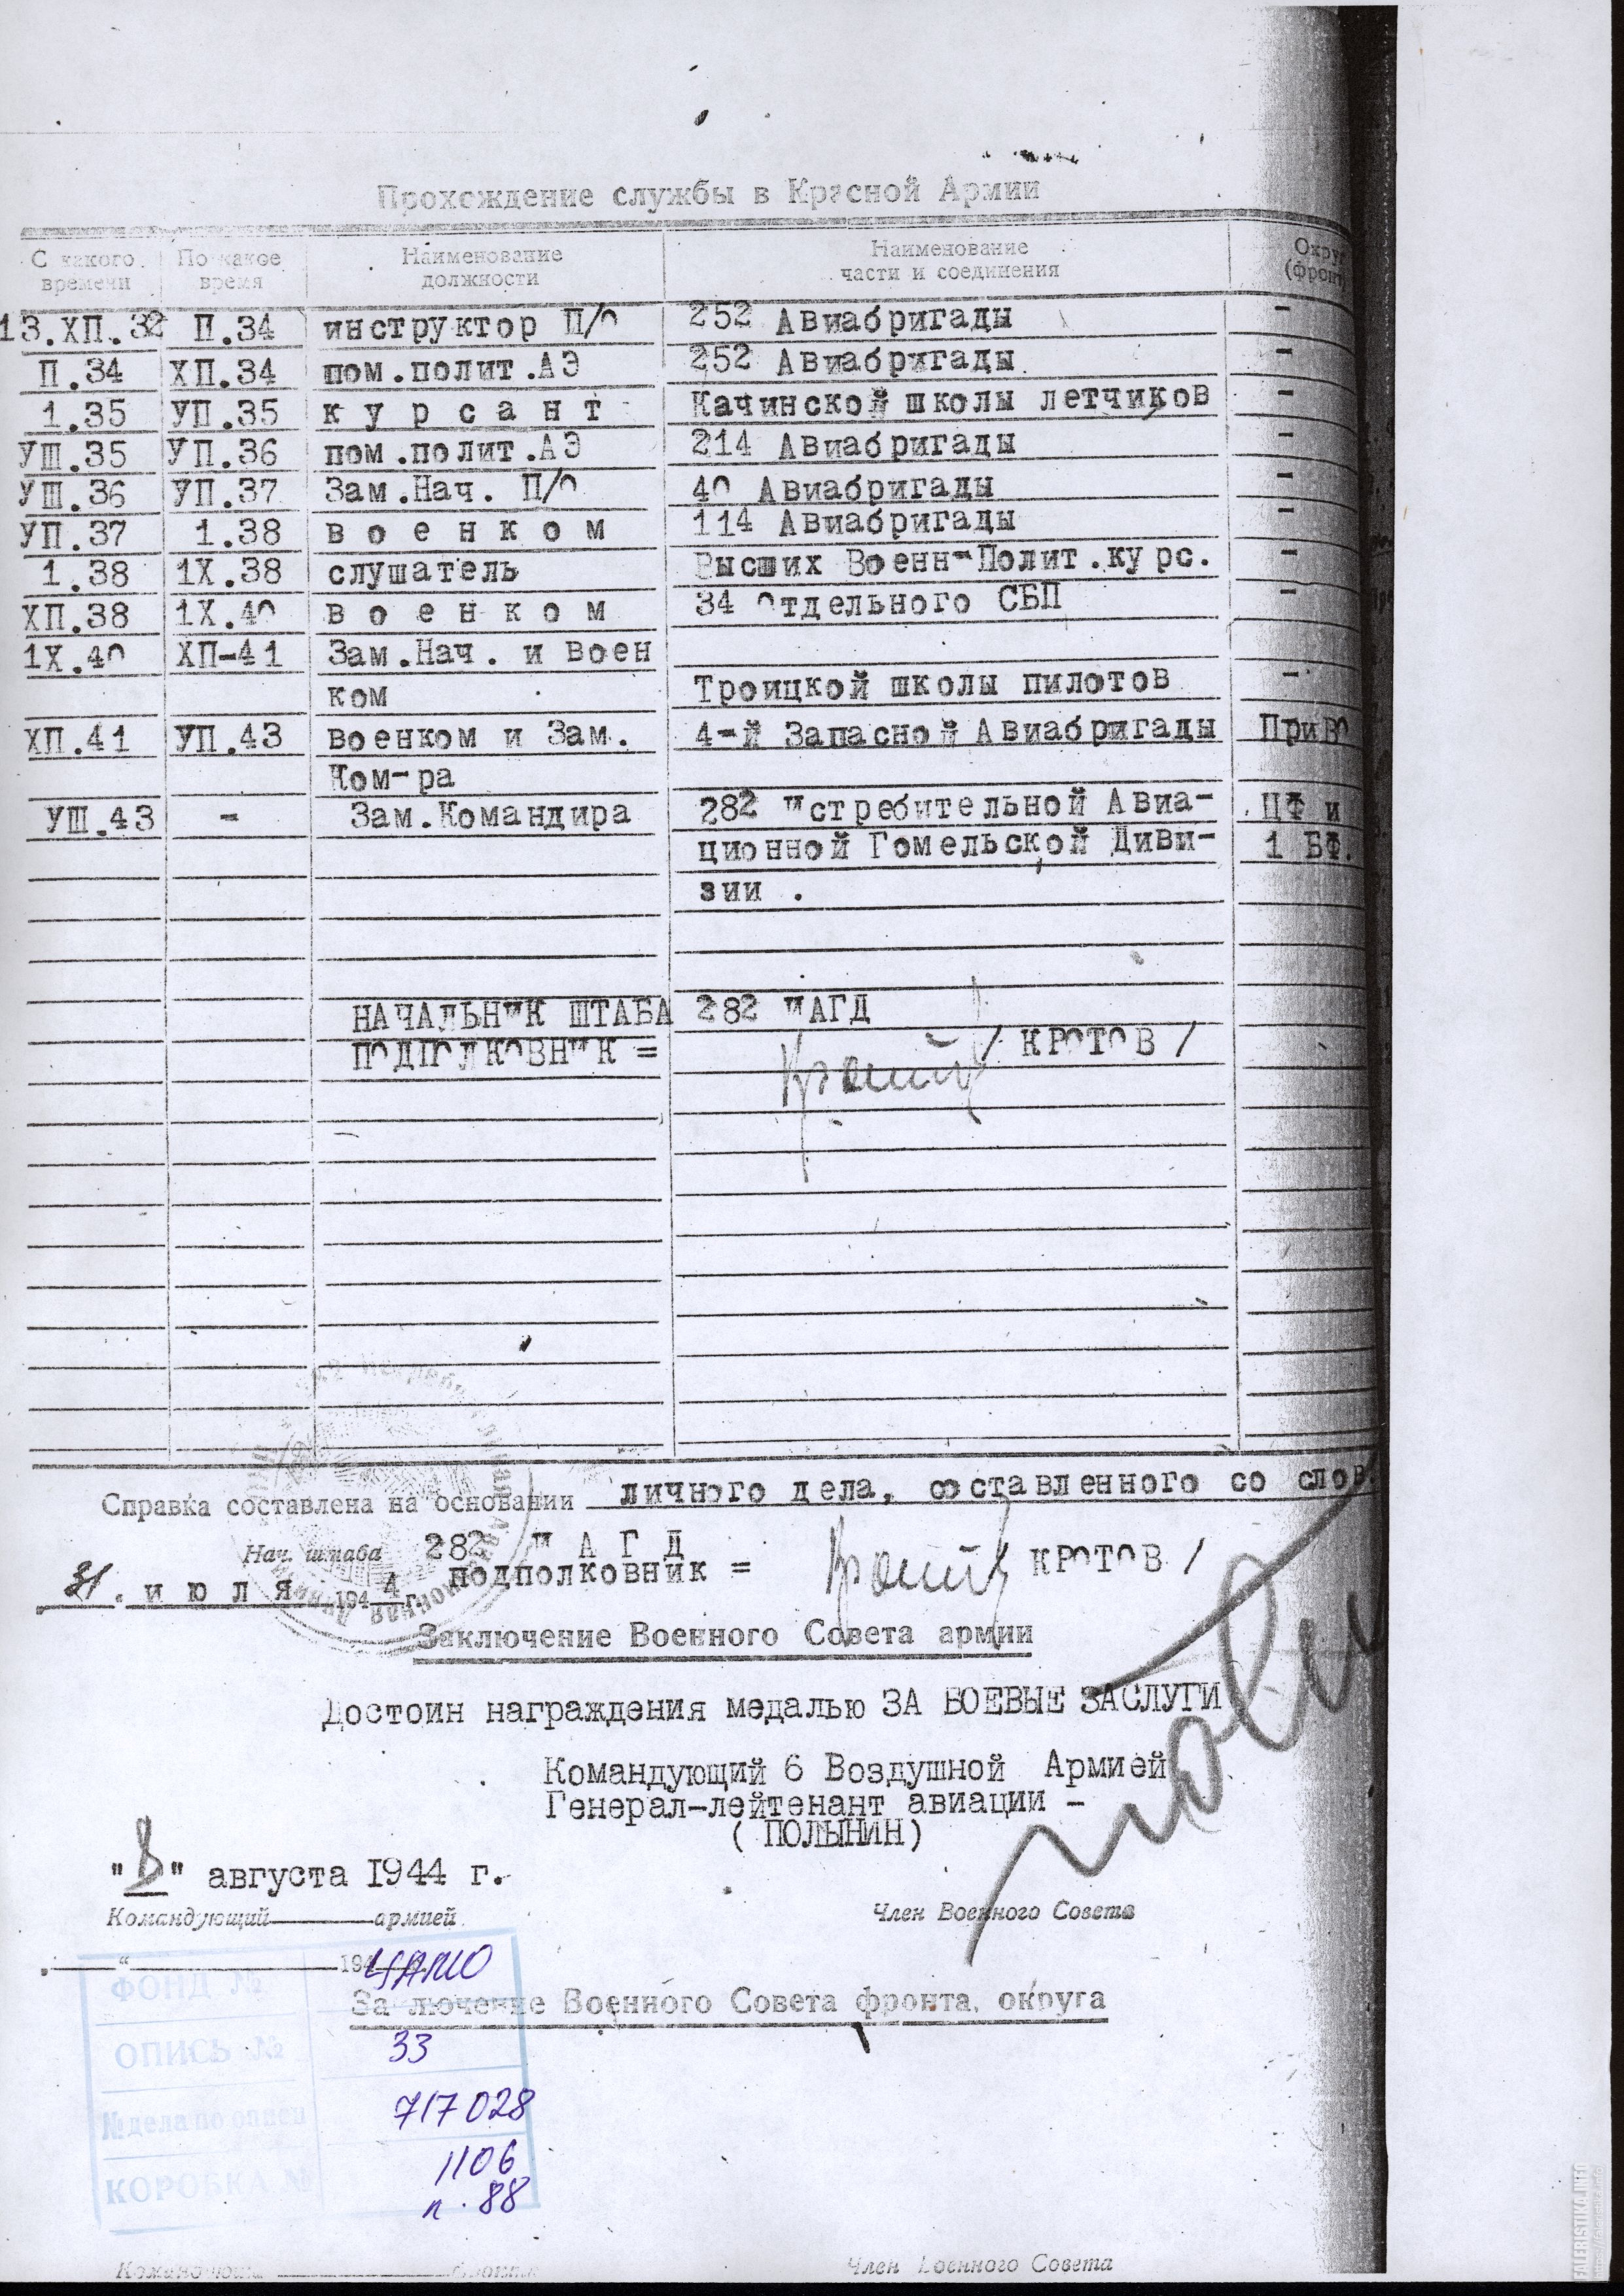 Прохождение службы в Красной Армии
С какого времени | По какое время | Наименование должности | Наименование части и соединения | Округ (фронт)
13.ХП.32 | П.34 | инструктор П/О | 252 Авиабригады | -
П.34 | ХП.34 | пом.полит.АЭ | 252 Авиабригады | -
1.35 | УП.35 | к у р с а н т | Качинской школы летчиков | -
УШ.35 | УП.36 | пом.полит.АЭ | 214 Авиабригады | -
УШ.36 | УП.37 | Зам.Нач. П/О | 40 Авиабригады | -
УП.37 | 1.38 | в о е н к о м | 114 Авиабригады | -
1.38 | 1Х.38 | слушатель | Высших Военн-Полит.курс. | -
ХП.38 | 1Х.40 | в о е н к о м | 34 Отдельного СБП | -
1Х.40 | ХП-41 | Зам.Нач. и воен
ком | Троицкой школы пилотов | -
ХП.41 | УП.43 | военком и Зам. | 4-й Запасной Авиабригады | ПриВО
Ком-ра
УШ.43 | - | Зам.Командира | 282 Истребительной Авиа- | ЦФ и
ционной Гомельской Диви- | 1 БФ.
зии .
НАЧАЛЬНИК ШТАБА 282 ИАГД
ПОДПОЛКОВНИК = / КРОТОВ /
Справка составлена на основании личного дела, составленного со слов.
Нач. штаба 282 И А Г Д
подполковник = КРОТОВ /
31. и ю л я 1944 г.
Заключение Военного Совета армии
Достоин награждения медалью ЗА БОЕВЫЕ ЗАСЛУГИ
Командующий 6 Воздушной Армией
Генерал-лейтенант авиации -
( ПОЛЫНИН)
"8" августа 1944 г.
Командующий армией
Член Военного Совета
" 194
ЦАМО
ФОНД №
Заключение Военного Совета фронта, округа
ОПИСЬ № 33
№ дела по описи 717028
КОРОБКА № 1106
л. 88
Член Военного Совета
FALERISTIKA.INFO